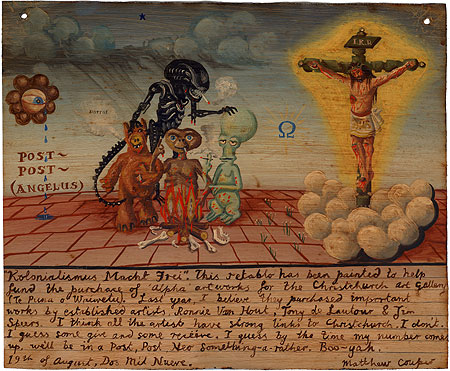 I.K.R
Ω
POST~
POST~
(ANGELUS)
"Kolonialismus Macht Frei". This retablo has been painted to help
fund the purchase of 'alpha' artworks for the Christchurch Art Gallery
(Te Puna o Waiwetu). Last year, I believe they purchased important
works by established artists, Ronnie Van Hout, Tony de Lautour & Jim
Speers. I think all the artists have strong links to Christchurch, I don't.
I guess some give and some receive. I guess by the time my number comes
up, we'll be in a Post, Post Neo Something-a-rather. Boo-yah.
19th of August, Dos Mil Nueve. Matthew Couper